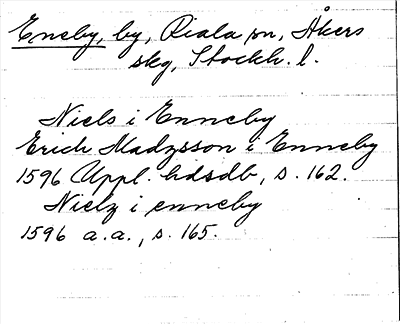 Eneby, by, Riala sn, Åkers
skg, Stockh. l.
Niels i Enneby
Erich Madzsson i Enneby
1596 Uppl. hdsdb, s. 162.
Nielz i enneby
1596 a.a., s. 165.